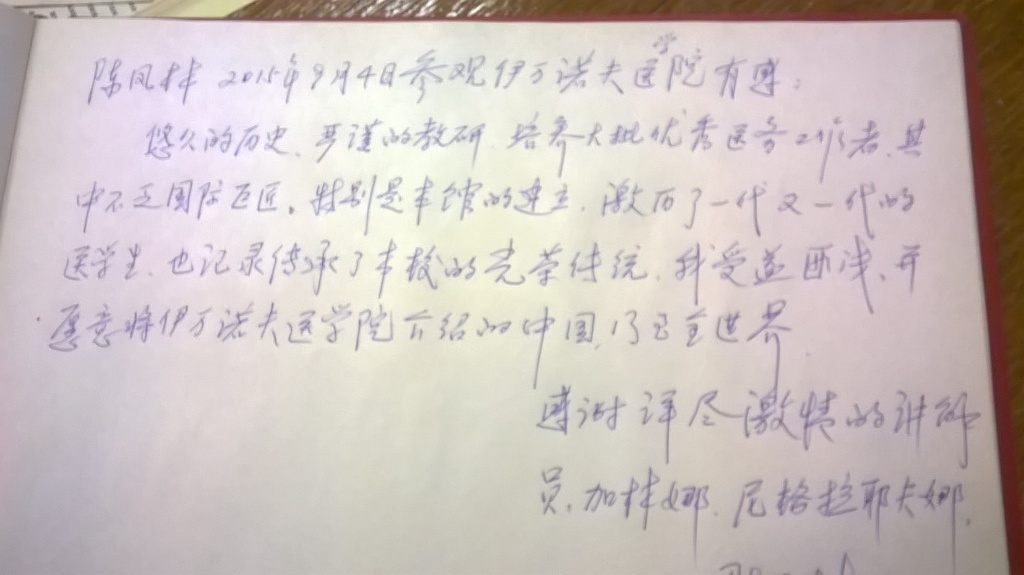 陈凤林 2015年9月4日参观伊万诺夫医学院有感：
悠久的历史、严谨的教研、培养大批优秀医务工作者，其
中不乏国际巨匠。特别是本馆的建立，激厉了一代又一代的
医学生，也记录传承了本校的光荣传统，我受益匪浅，并
愿意将伊万诺夫医学院介绍的中国，乃至全世界
感谢详尽激情的讲解
员，加林娜．尼格拉耶夫娜，